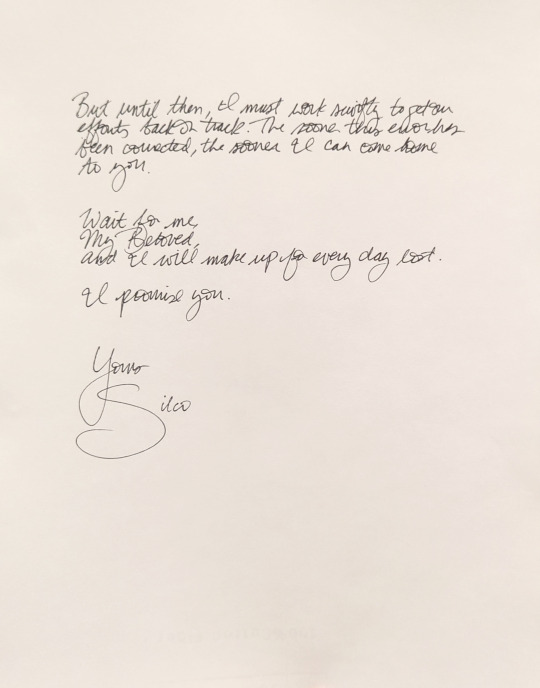 But until then, I must work swiftly to get our
efforts back on track. The sooner this error has
been corrected, the sooner I can come home
to you.
Wait for me,
My Beloved,
and I will make up for every day lost.
I promise you.
Yours
Silco